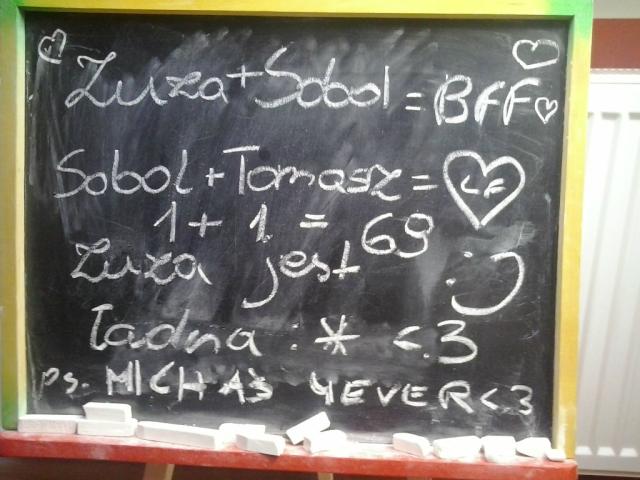 Zuza+Sobol = BFF
Sobol+Tomasz=
1+1=69
Zuza jest :)
Ładna :* <3
ps. MICHAŚ 4EVER<3